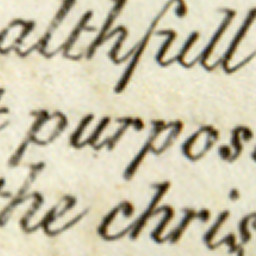 althfull
purpos
the chris